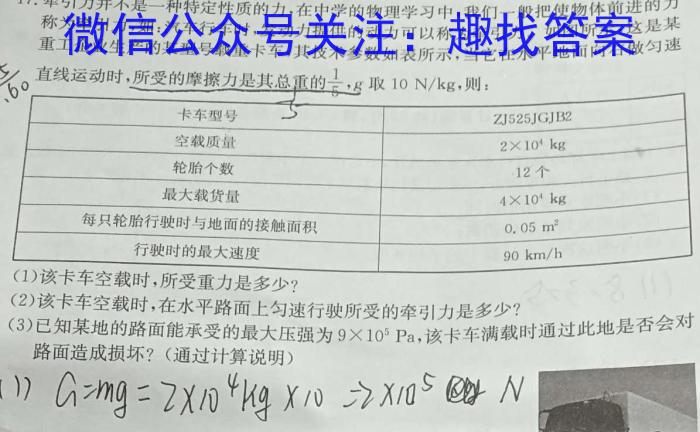 17. 牵引力并不是一种特定性质的力,在中学的物理学习中,我们一般把使物体前进的力
微信公众号关注:趣找答案
直线运动时,所受的摩擦力是其总重的1/5,g 取 10 N/kg,则:
卡车型号 ZJ525JGJB2
空载质量 2×10⁴ kg
轮胎个数 12 个
最大载货量 4×10⁴ kg
每只轮胎行驶时与地面的接触面积 0.05 m²
行驶时的最大速度 90 km/h
(1)该卡车空载时,所受重力是多少?
(2)该卡车空载时,在水平路面上匀速行驶所受的牵引力是多少?
(3)已知某地的路面能承受的最大压强为 9×10⁵ Pa,该卡车满载时通过此地是否会对
路面造成损坏?(通过计算说明)
(1) G=mg=2×10⁴kg×10=2×10⁵ N